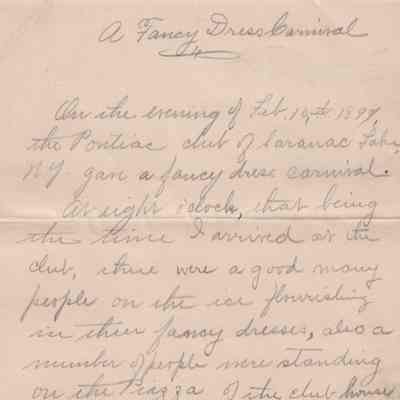 A Fancy Dress Carnival
On the evening of Feb. 10, th 1897,
the Pontiac club of Saranac Lake,
NY gave a fancy dress carnival.
At eight o'clock, that being
the time I arrived at the
club, there were a good many
people on the ice flourishing
in their fancy dresses, also a
number of people were standing
on the Piazza of the club house